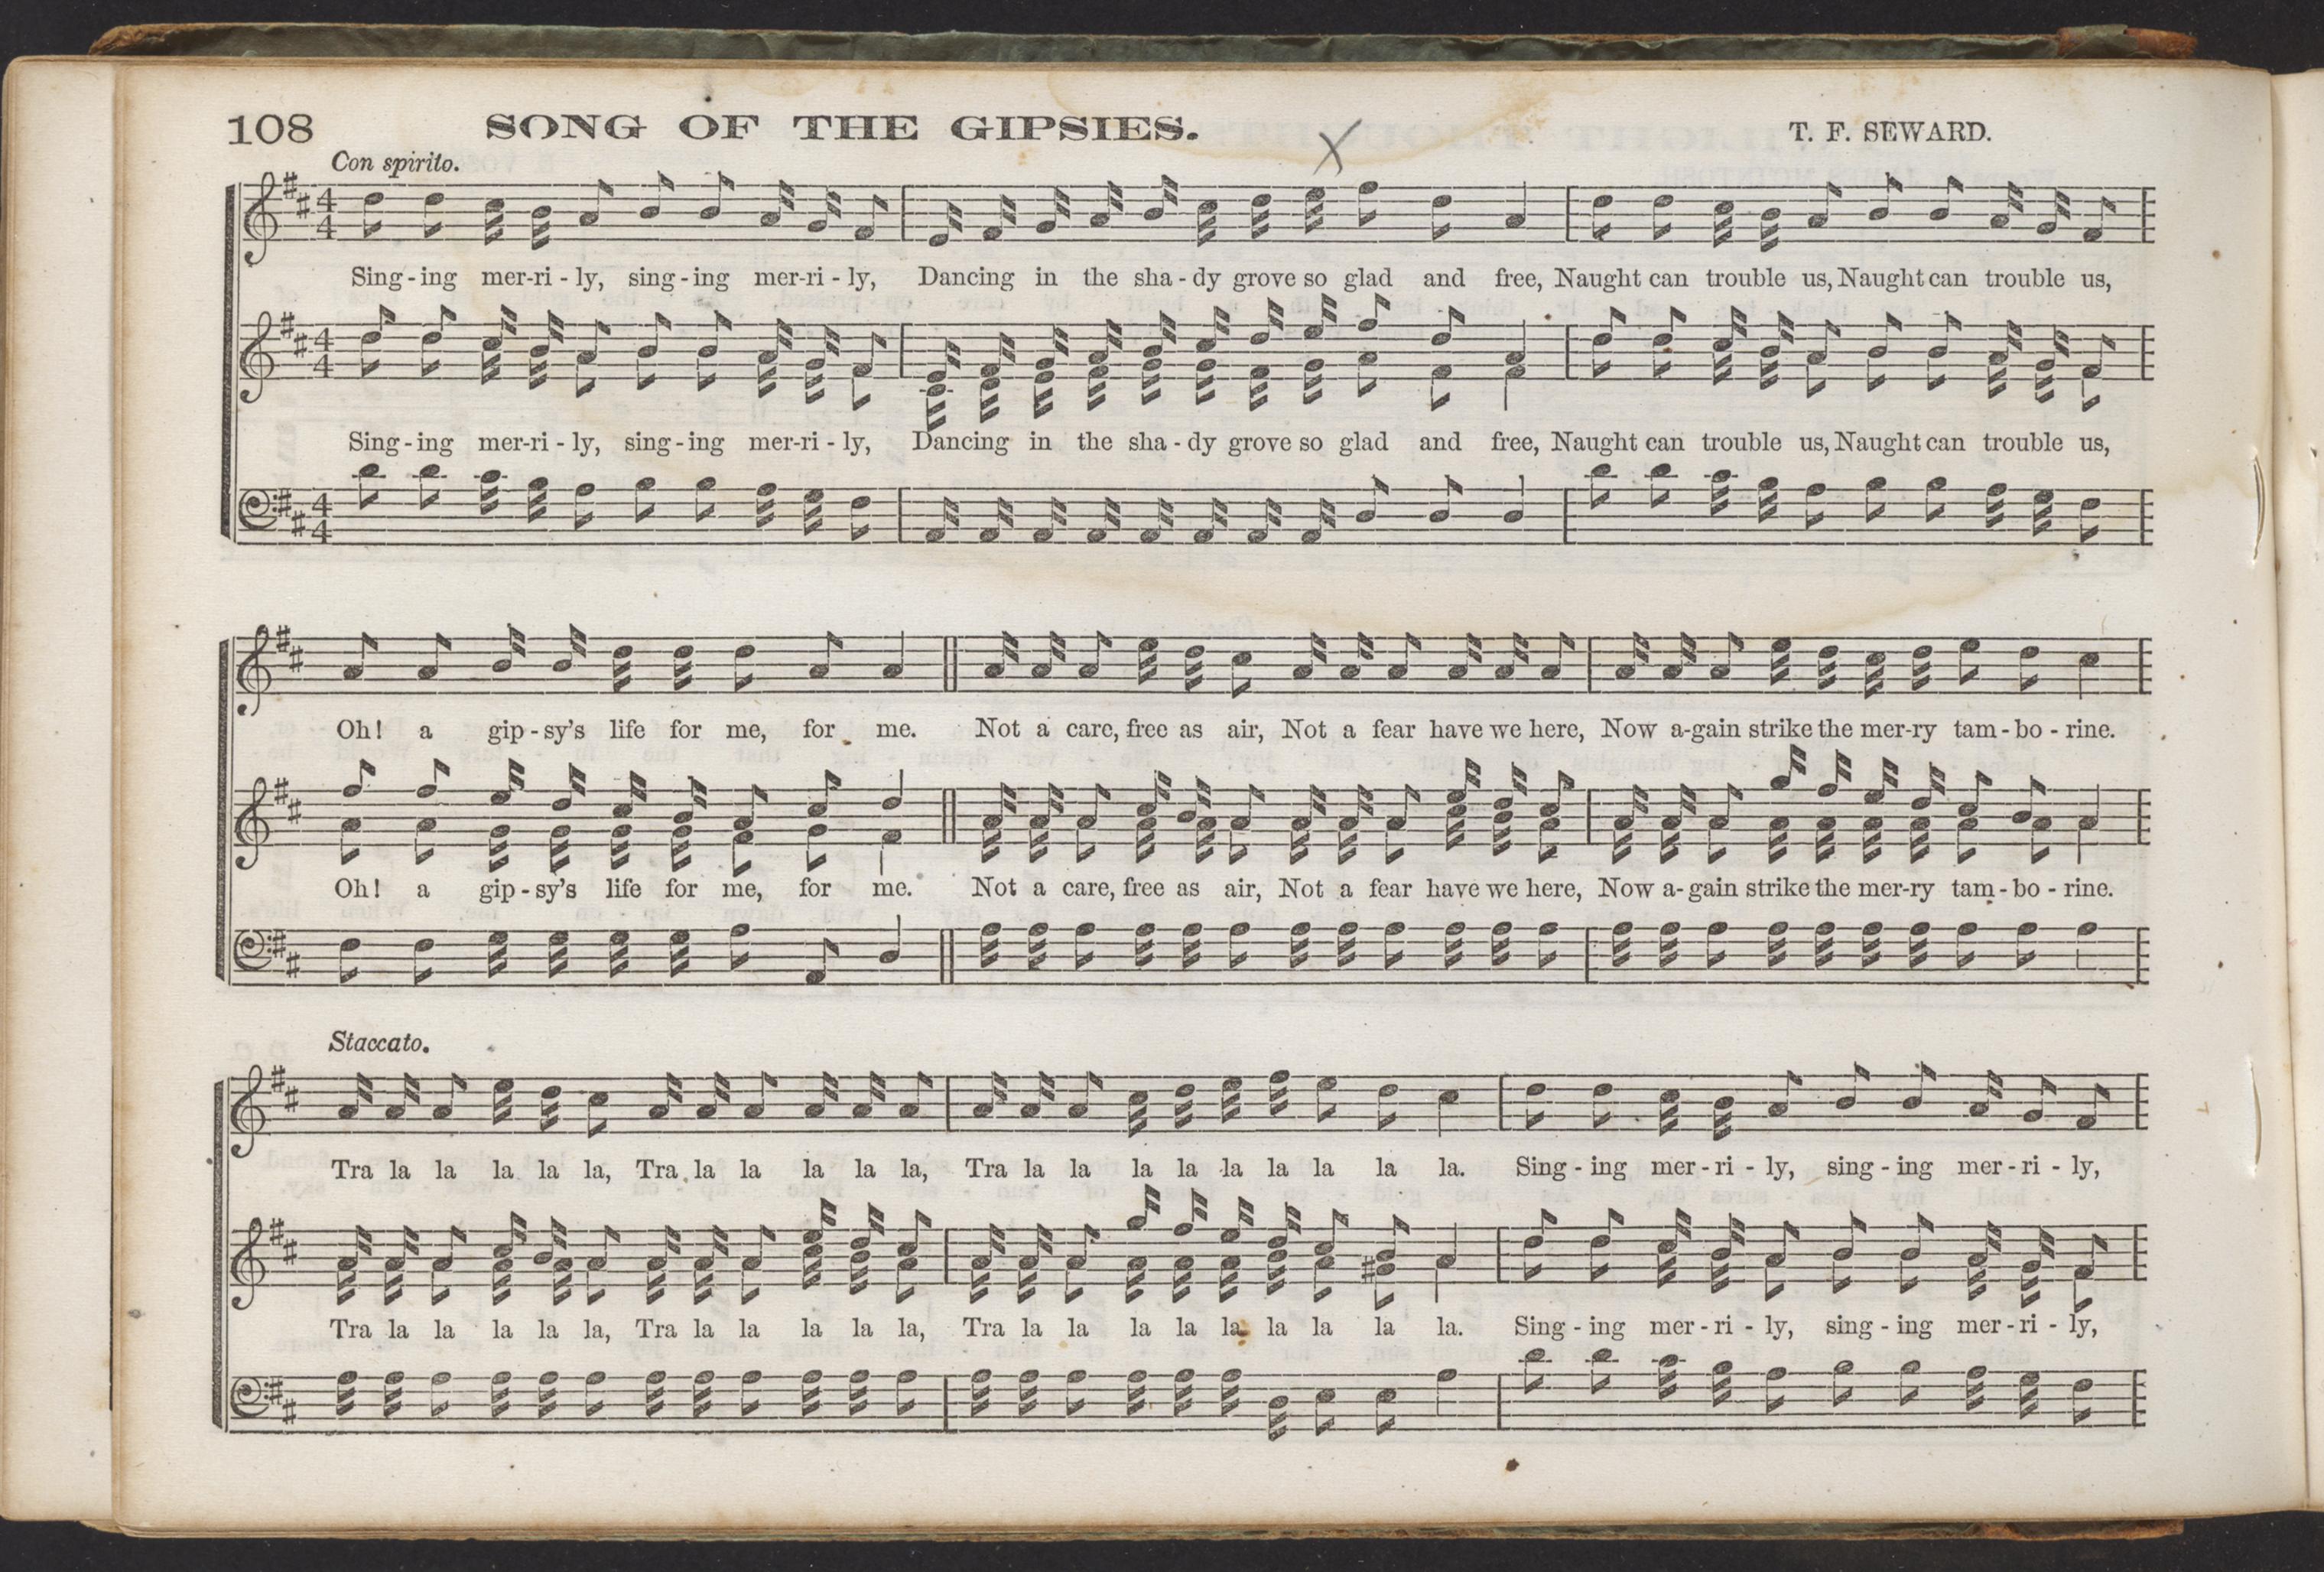 108 SONG OF THE GIPSIES. T. F. SEWARD.
Con spirito.
Sing-ing mer-ri-ly, sing-ing mer-ri-ly, Dancing in the sha-dy grove so glad and free, Naught can trouble us, Naught can trouble us,
Sing-ing mer-ri-ly, sing-ing mer-ri-ly, Dancing in the sha-dy grove so glad and free, Naught can trouble us, Naught can trouble us,
Oh! a gip-sy's life for me, for me. Not a care, free as air, Not a fear have we here, Now a-gain strike the mer-ry tam-bo-rine.
Oh! a gip-sy's life for me, for me. Not a care, free as air, Not a fear have we here, Now a-gain strike the mer-ry tam-bo-rine.
Staccato.
Tra la la la la la, Tra la la la la la, Tra la la la la la la la la la. Sing-ing mer-ri-ly, sing-ing mer-ri-ly,
Tra la la la la la, Tra la la la la la, Tra la la la la la la la la la. Sing-ing mer-ri-ly, sing-ing mer-ri-ly,